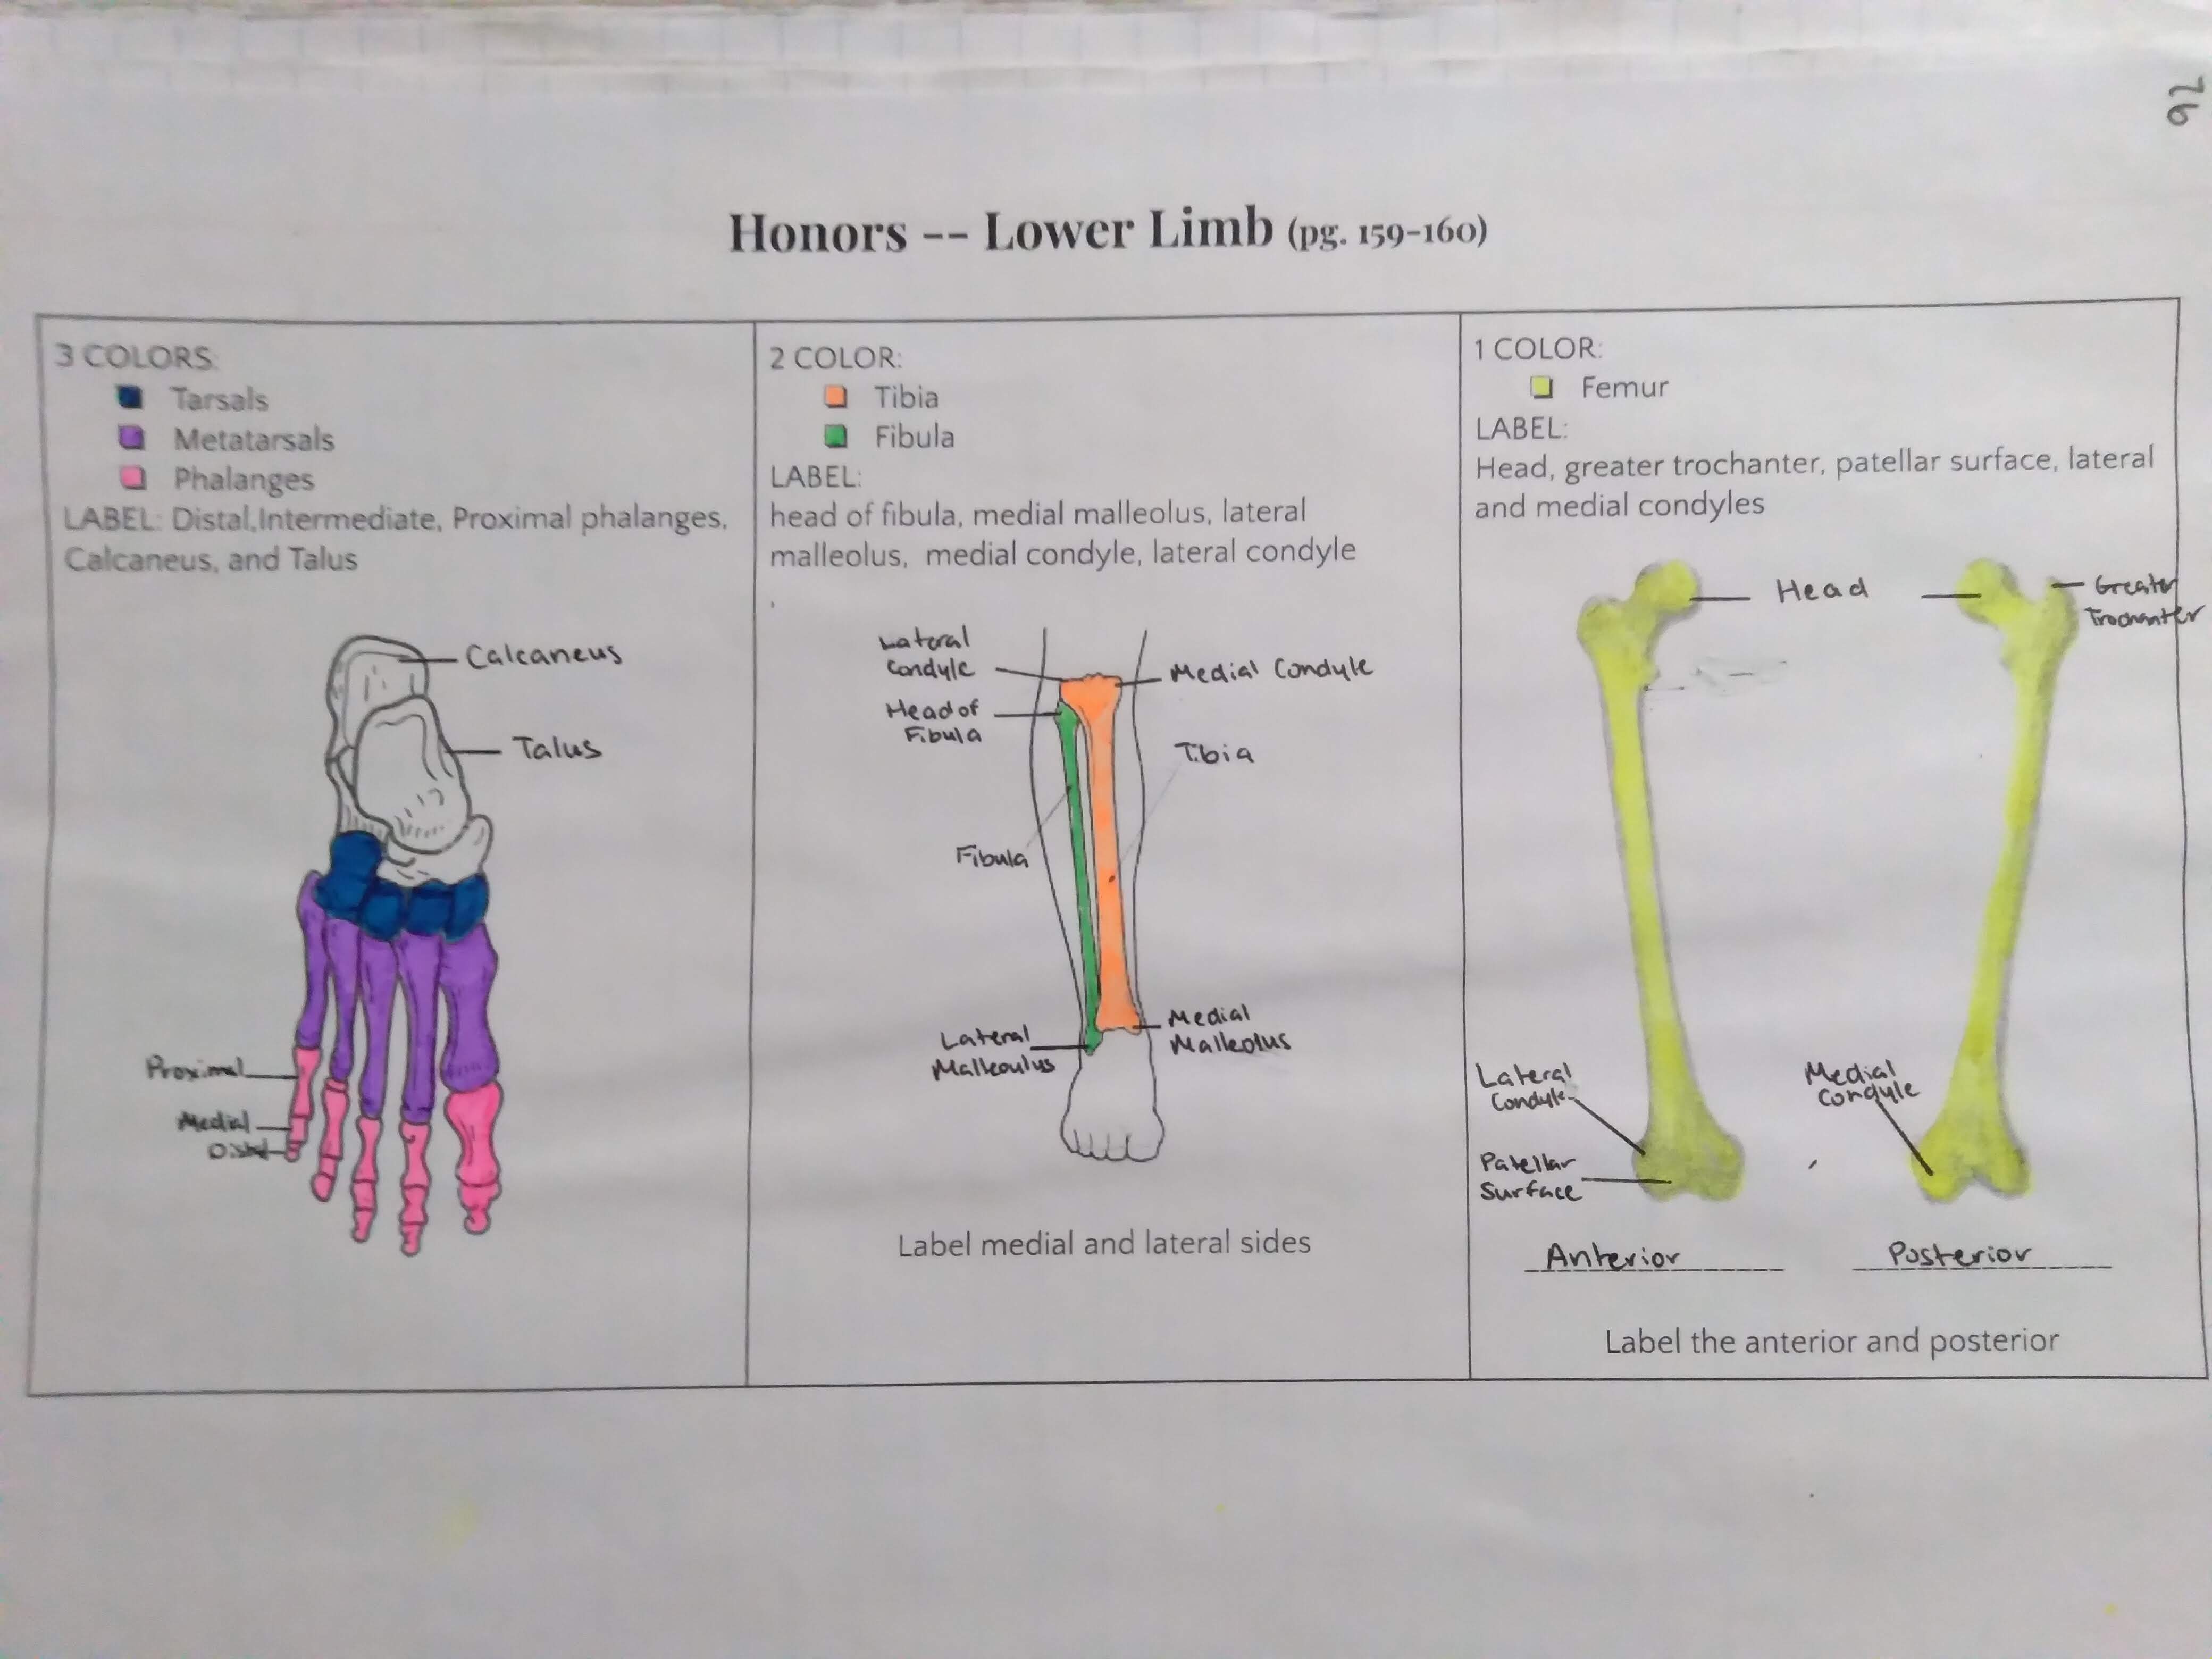 62
Honors -- Lower Limb (pg. 159-160)
3 COLORS:
Tarsals
Metatarsals
Phalanges
LABEL: Distal,Intermediate, Proximal phalanges,
Calcaneus, and Talus
Calcaneus
Talus
Proximal
Medial
Distal
2 COLOR:
Tibia
Fibula
LABEL:
head of fibula, medial malleolus, lateral
malleolus, medial condyle, lateral condyle
Lateral
Condyle
Medial Condyle
Head of
Fibula
Tibia
Fibula
Lateral
Malleoulus
Medial
Malleolus
Label medial and lateral sides
1 COLOR:
Femur
LABEL:
Head, greater trochanter, patellar surface, lateral
and medial condyles
Head
Greater
Trochanter
Lateral
Condyle
Medial
Condyle
Patellar
Surface
Anterior
Posterior
Label the anterior and posterior